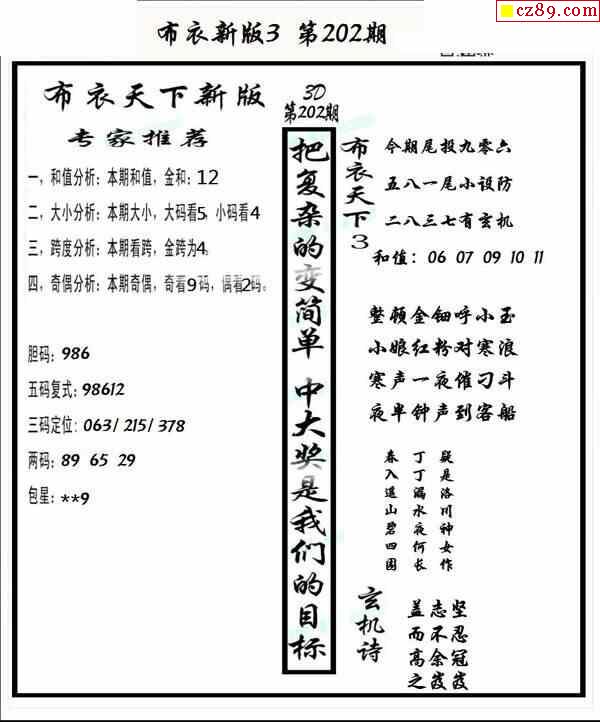 cz89.com
布衣新版3 第202期
布衣天下新版
专家推荐
一，和值分析：本期和值，金和：12
二，大小分析：本期大小，大码看5，小码看4
三，跨度分析：本期看跨，金跨为4。
四，奇偶分析：本期奇偶，奇看9码，偶看2码。
胆码：986
五码复式：98612
三码定位：063/215/378
两码：89 65 29
包星：**9
3D
第202期
把复杂的变简单 中大奖是我们的目标
布衣天下3
今期尾投九零六
五八一尾小设防
二八三七有玄机
和值：06 07 09 10 11
整顿金钿呼小玉
小娘红粉对寒浪
寒声一夜催刁斗
夜半钟声到客船
疑是洛川神女作
丁丁漏水夜何长
春入遥山碧四围
玄机诗
坚忍冠岌
志不余岌
盖而高之